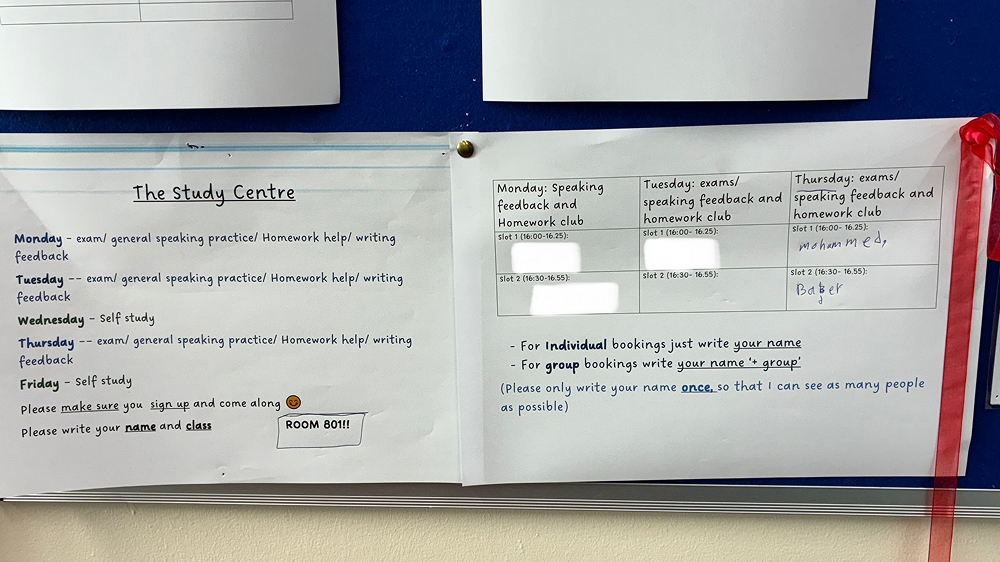 The Study Centre
Monday - exam/ general speaking practice/ Homework help/ writing
feedback
Tuesday -- exam/ general speaking practice/ Homework help/ writing
feedback
Wednesday - Self study
Thursday -- exam/ general speaking practice/ Homework help/ writing
feedback
Friday - Self study
Please make sure you sign up and come along 😊
Please write your name and class
ROOM 801!!
Monday: Speaking
feedback and
Homework club
Slot 1 (16:00-16.25):
Slot 2 (16:30-16.55):
Tuesday: exams/
speaking feedback and
homework club
Slot 1 (16:00- 16.25):
Slot 2 (16:30- 16.55):
Thursday: exams/
speaking feedback and
homework club
Slot 1 (16:00- 16.25):
mohammed,
Slot 2 (16:30- 16.55):
- For Individual bookings just write your name
- For group bookings write your name '+ group'
(Please only write your name once, so that I can see as many people
as possible)